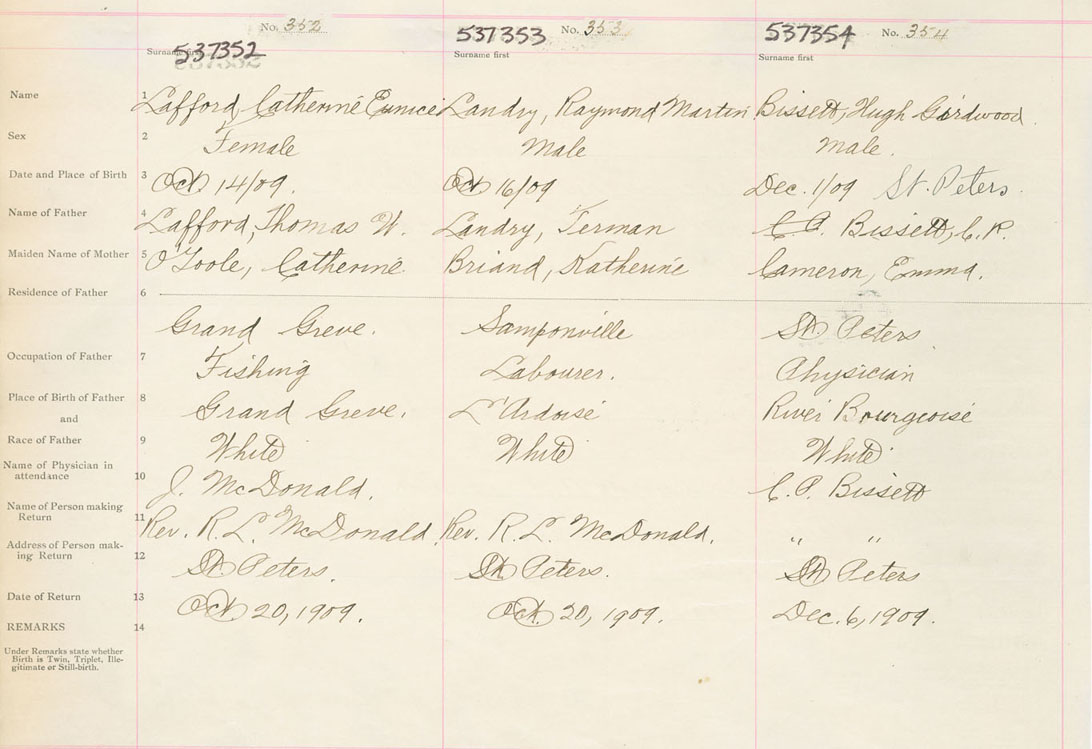 No. 352 537353 No. 353 537354 No. 354
Surname first 537352 Surname first Surname first
Name 1 Lafford, Catherine Eunice Landry, Raymond Martin Bissett, Hugh Girdwood
Sex 2 Female Male Male.
Date and Place of Birth 3 Oct 14/09. Oct 16/09 Dec. 1/09 St. Peters
Name of Father 4 Lafford, Thomas W. Landry, Ferman C. P. Bissett, C. P.
Maiden Name of Mother 5 O'Toole, Catherine Briand, Katherine Cameron, Emma.
Residence of Father 6
Grand Greve. Samponville St. Peters
Occupation of Father 7 Fishing Labourer. Physician
Place of Birth of Father 8 Grand Greve. L'Ardoise River Bourgeoise
and
Race of Father 9 White White White
Name of Physician in
attendance 10 J. McDonald. C. P. Bissett
Name of Person making
Return 11 Rev. R. L. McDonald Rev. R. L. McDonald. " "
Address of Person mak-
ing Return 12 St. Peters. St. Peters. St. Peters
Date of Return 13 Oct 20, 1909. Oct. 20, 1909. Dec. 6, 1909.
REMARKS 14
Under Remarks state whether
Birth is Twin, Triplet, Ille-
gitimate or Still-birth.